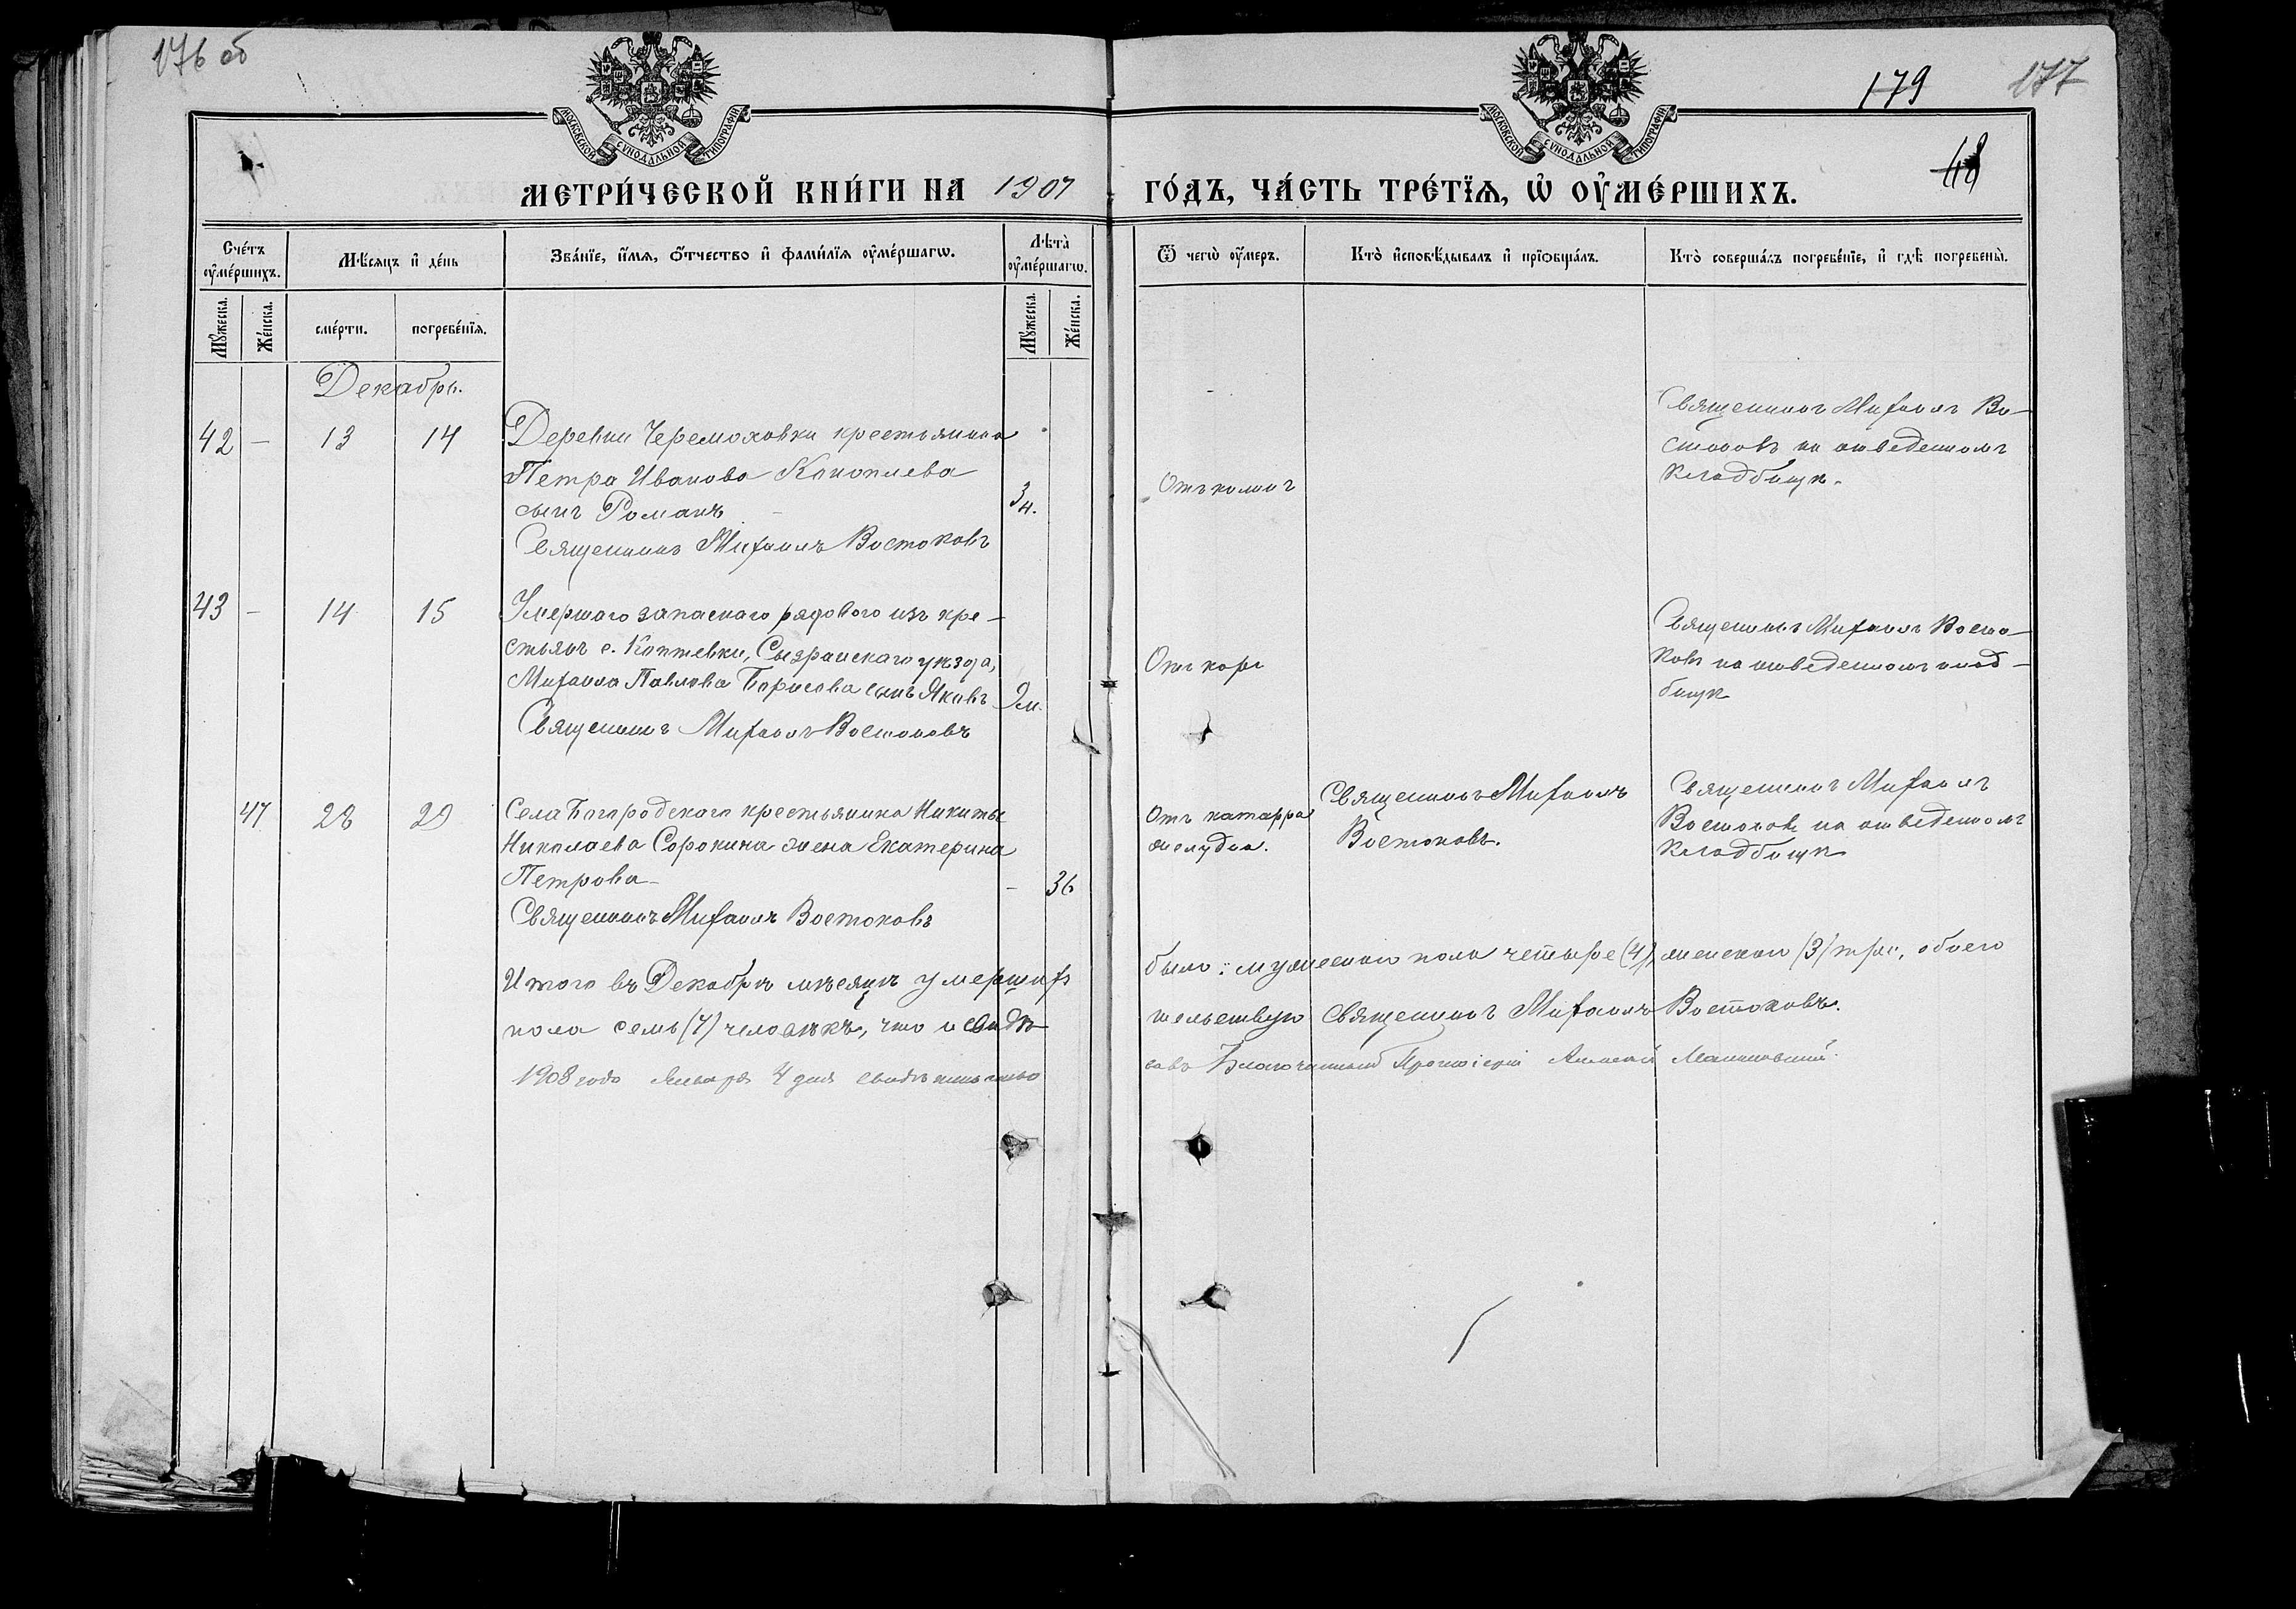 176 об
179 177
48
МОСКОВСКОЙ СУНОДАЛЬНОЙ ТИПОГРАФІИ
МОСКОВСКОЙ СУНОДАЛЬНОЙ ТИПОГРАФІИ
МЕТРИ́ЧЕСКОЙ КНИ́ГИ НА 1907 ГО́ДЪ, ЧА́СТЬ ТРЕ́ТЇѦ, Ѡ҆ ОУ҆МЕ́РШИХЪ.
Сче́тъ оу҆ме́ршихъ.
Мѣ́сяцъ и҆ де́нь
Зва́нїе, и҆́мя, ѻ҆́тчество и҆ фами́лїя оу҆ме́ршагѡ.
Лѣта̀ оу҆ме́ршагѡ.
Ѿ чегѡ̀ оу҆́меръ.
Кто̀ и҆сповѣ́дывалъ и҆ прїѡбща́лъ.
Кто̀ соверша́лъ погребе́нїе, и҆ гдѣ̀ погребены̀.
Му́жеска.
Же́нска.
сме́рти.
погребе́нїя.
Му́жеска.
Же́нска.
Декабрь.
42 – 13 14
Деревни Черемоховки крестьянина
Петра Иванова Коноплева
сынъ Романъ
3 н.
Священникъ Михаилъ Востоковъ
Отъ колик
Священникъ Михаилъ Во-
стоковъ на отведенномъ
кладбищѣ.
43 – 14 15
Умершаго запаснаго рядового изъ кре-
стьянъ с. Коптевки, Сызранскаго уѣзда,
Михаила Павлова Борисова сынъ Яковъ
2 м.
Священникъ Михаилъ Востоковъ
Отъ кори
Священникъ Михаилъ Восто-
ковъ на отведенномъ клад-
бищѣ
47 28 29
Села Богородскаго крестьянина Никиты
Николаева Сорокина жена Екатерина
Петрова –
– 36
Священникъ Михаилъ Востоковъ
Отъ катарра
желудка.
Священникъ Михаилъ
Востоковъ.
Священникъ Михаилъ
Востоковъ на отведенномъ
кладбищѣ
Итого въ Декабрѣ мѣсяцѣ умершихъ было: мужескаго пола четыре (4), женскаго (3) три, обоего
пола семь (7) человѣкъ, что и свидѣтельствую Священникъ Михаилъ Востоковъ.
1908 года Января 4 дня свидѣтельство валъ Благочинный Протоіерей Алексѣй